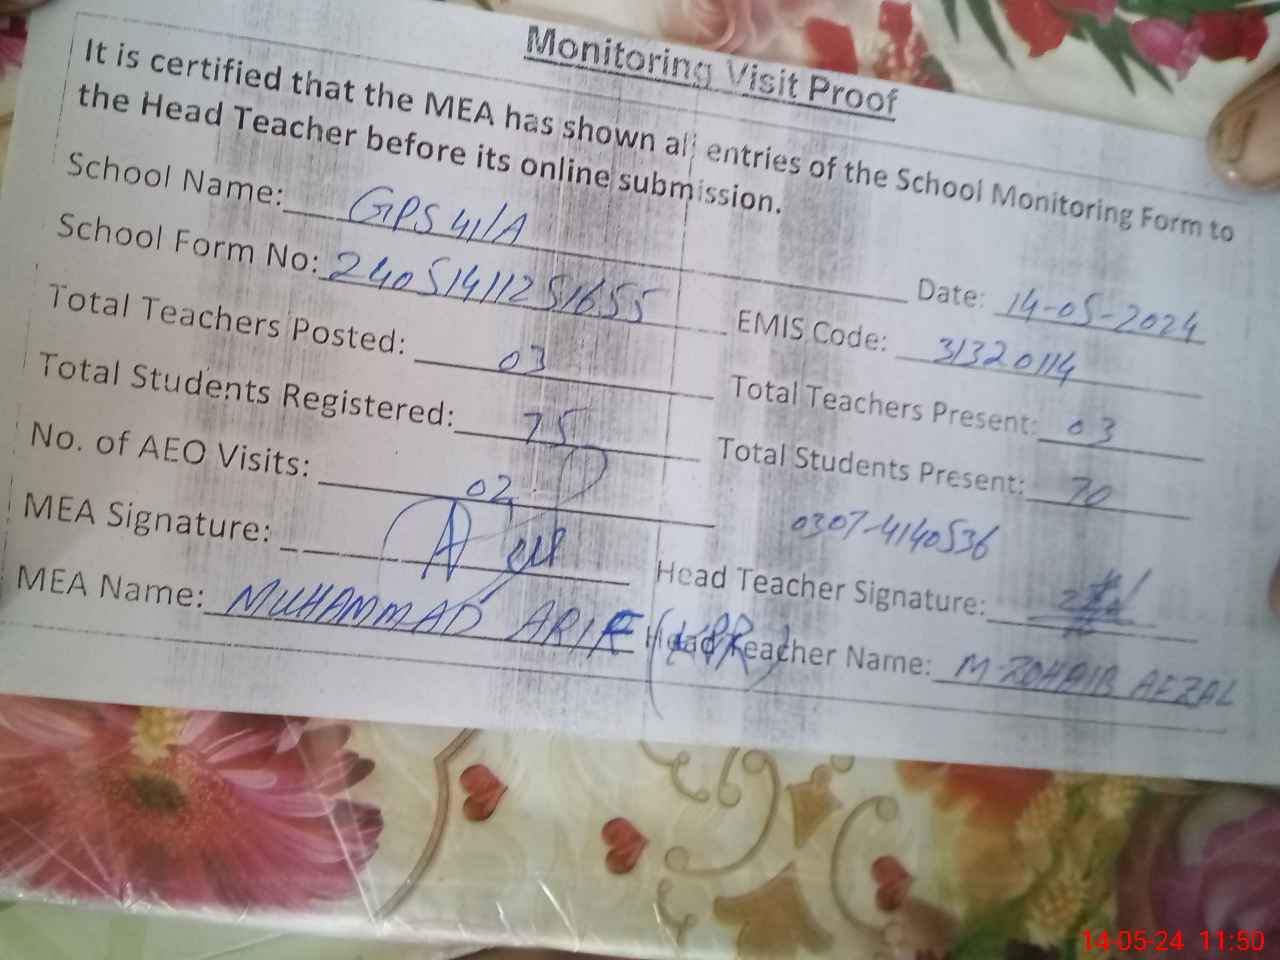 Monitoring Visit Proof
It is certified that the MEA has shown all entries of the School Monitoring Form to
the Head Teacher before its online submission.
School Name: GPS 41/A Date: 14-05-2024
School Form No: 24051411251655 EMIS Code: 31320114
Total Teachers Posted: 03 Total Teachers Present: 03
Total Students Registered: 75 Total Students Present: 70
No. of AEO Visits: 02 0307-4140536
MEA Signature: Head Teacher Signature:
MEA Name: MUHAMMAD ARIF Head Teacher Name: M-ZOHAIB AFZAL
14-05-24 11:50